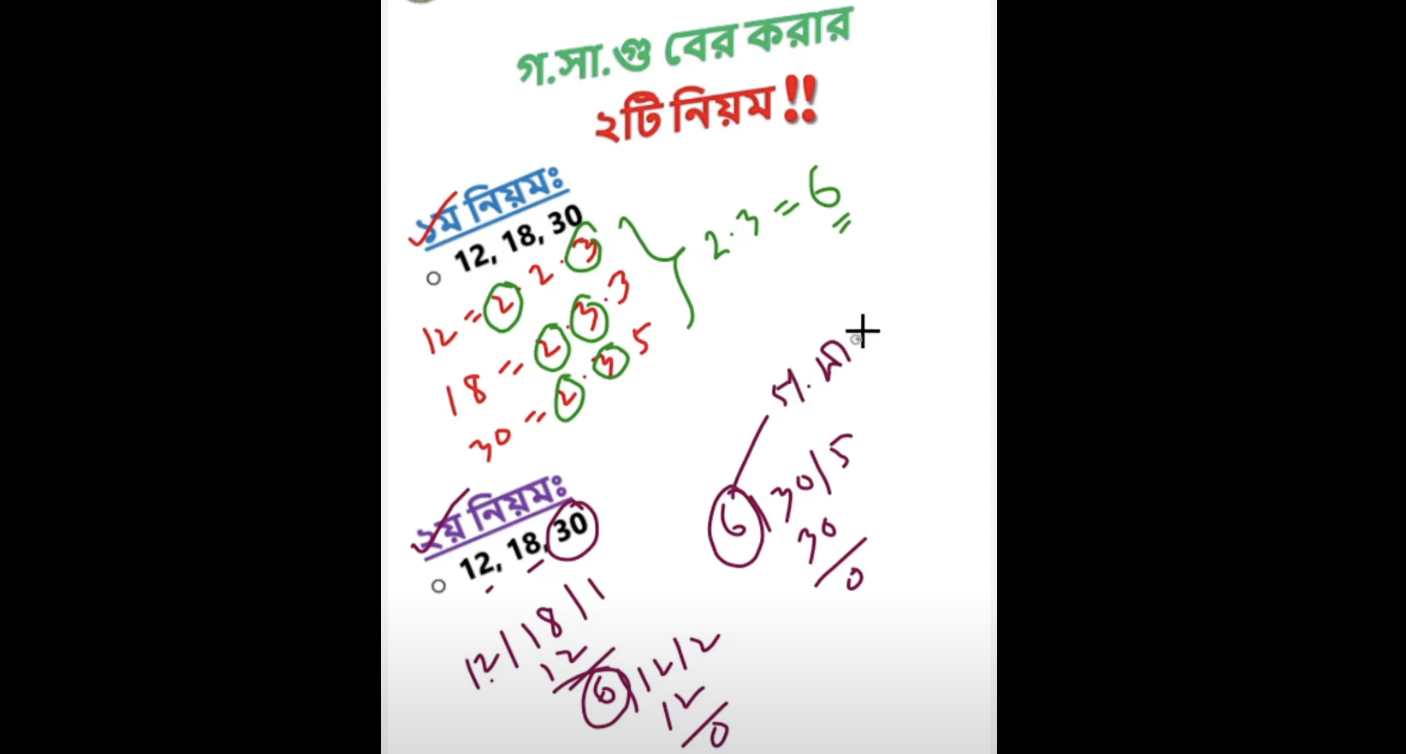 গ.সা.গু বের করার
২টি নিয়ম !!
১ম নিয়মঃ
12, 18, 30
12 = 2 . 2 . 3
18 = 2 . 3 . 3
30 = 2 . 3 5
2 . 3 = 6
২য় নিয়মঃ
12, 18, 30
12 ) 18 ( 1
12
6 ) 12 ( 2
12
0
6 ) 30 ( 5
30
0